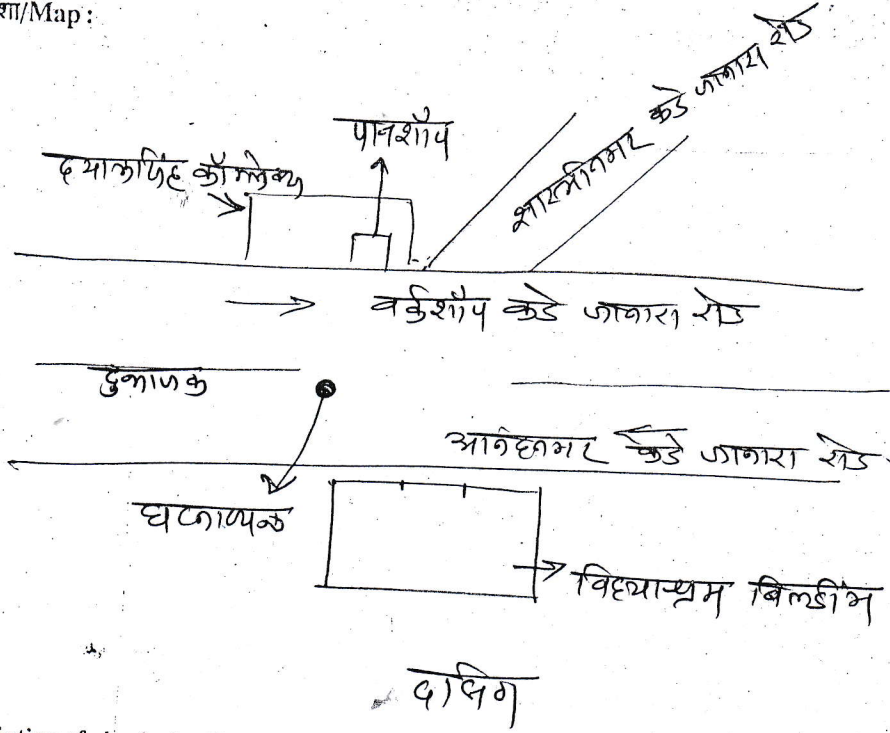 शा/Map :
पानशॉप
दयालसिंह कॉम्प्लेक्स
शास्त्रीनगर कडे जाणारा रोड
वर्कशॉप कडे जाणारा रोड
दुभाजक
आनंदनगर कडे जाणारा रोड
घटनास्थळ
विद्याश्रम बिल्डींग
दक्षिण